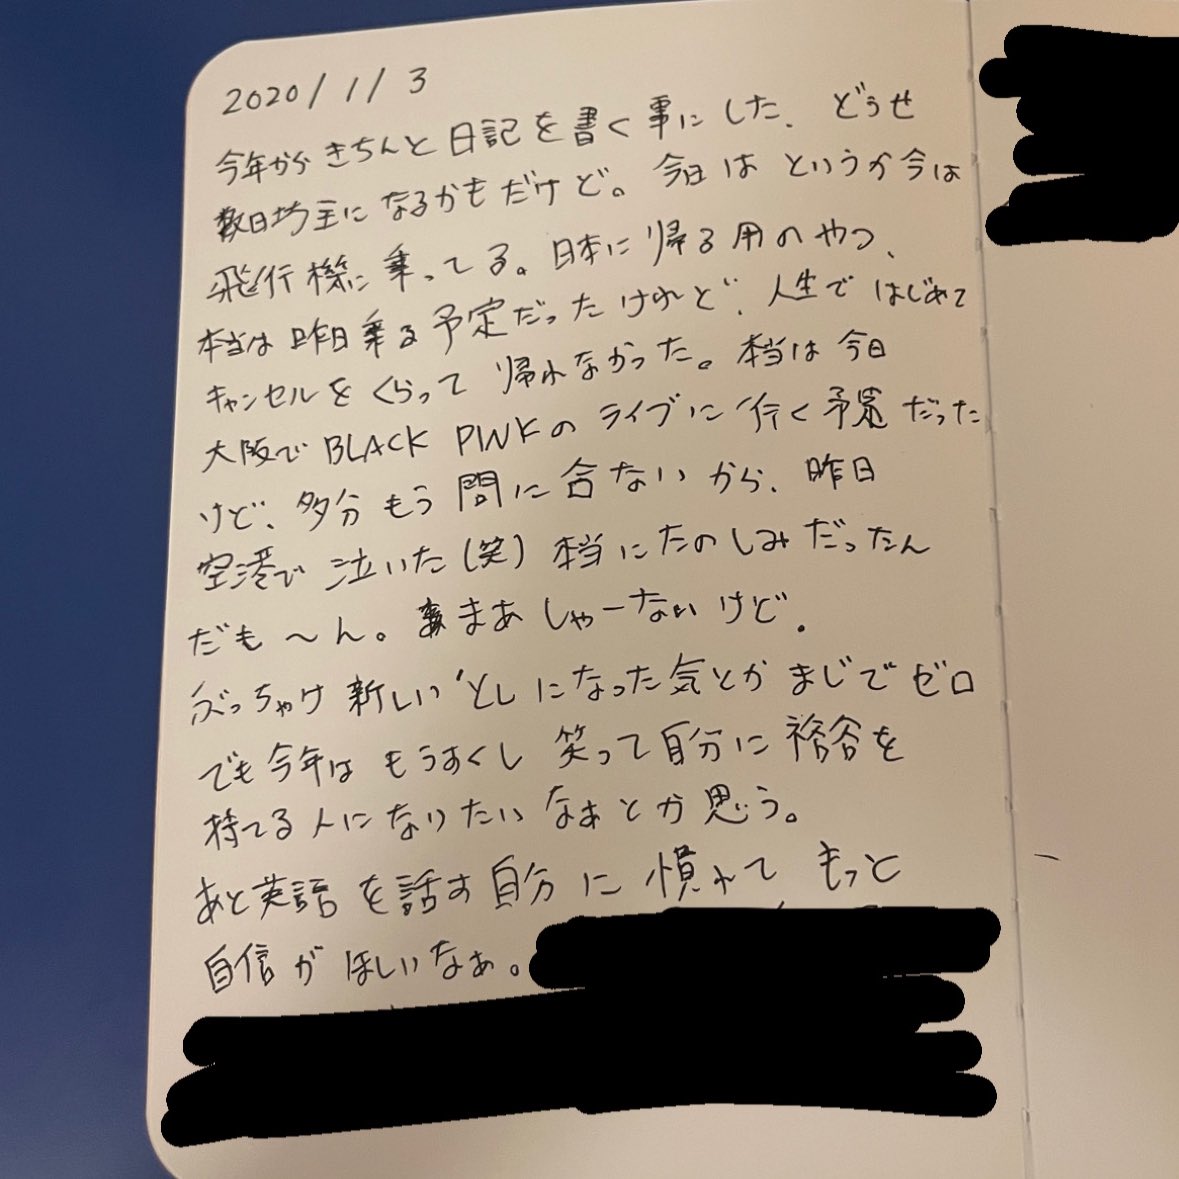 2020/1/3
今年から きちんと 日記を書く事にした、どうせ
数日坊主に なるかもだけど。今日は というか今は
飛行機に 乗ってる。日本に 帰る用のやつ、
本当は 昨日乗る 予定だったけれど、人生で はじめて
キャンセルを くらって 帰れなかった。本当は 今日
大阪で BLACK PINKの ライブに 行く 予定だった
けど、多分 もう 間に合ないから、昨日
空港で 泣いた(笑) 本当にたのしみだったん
だも〜ん。まあ しゃーないけど.
ぶっちゃけ 新しい としになった気とか まじでゼロ
でも今年は もうすくし 笑って自分に 裕を
持てる人になりたい なぁとか思う。
あと英語を話す自分に 慣れて もっと
自信が ほしいなぁ。